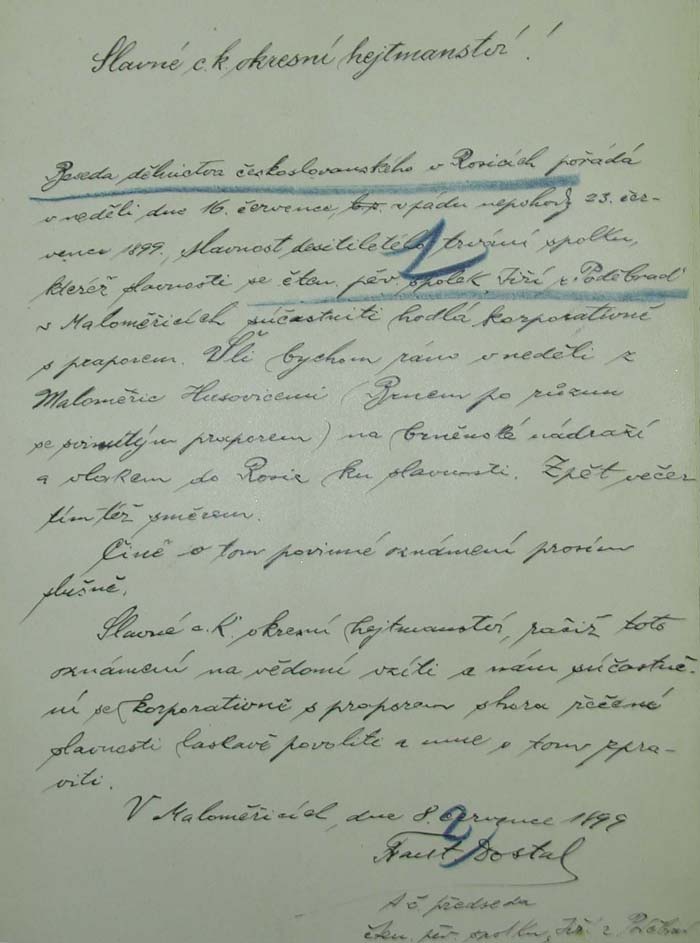 Slavné c. k. okresní hejtmanství!
Beseda dělnictva českoslovanského v Rosicích pořádá
v neděli dne 16. července, v pádu nepohody 23. čer-
vence 1899, slavnost desitiletého trvání spolku,
kteréž slavnosti se čten. pěv. spolek Jiří z Poděbrad
v Maloměřicích súčastniti hodlá korporativně
s praporem. Šli bychom ráno v neděli z
Maloměřic Husovicemi (Brnem po různu
se svinutým praporem) na brněnské nádraží
a vlakem do Rosic ku slavnosti. Zpět večer
tímtéž směrem.
Čině o tom povinné oznámení prosím
slušně.
Slavné c. k. okresní hejtmanství, račiž toto
oznámení na vědomí vzíti a nám súčastně-
ní se korporativně s praporem shora řečené
slavnosti laskavě povoliti a mne o tom zpra-
viti.
V Maloměřicích, dne 8. července 1899
1
2
Frant Dostal
předseda
čten. pěv. spolku, Jiří z Poděbrad